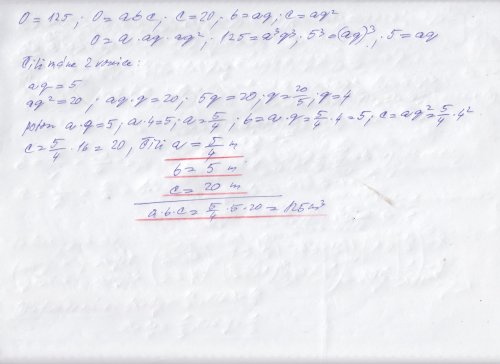 O = 125 ; O = abc ; c = 20 ; b = aq ; c = aq²
O = a · aq · aq² ; 125 = a³q³ ; 5³ = (aq)³ ; 5 = aq
Čili máme 2 rovnice :
aq = 5
aq² = 20 ; aq · q = 20 ; 5q = 20 ; q = 20/5 ; q = 4
potom a · q = 5 ; a · 4 = 5 ; a = 5/4 ; b = a · q = 5/4 · 4 = 5 ; c = aq² = 5/4 · 4²
c = 5/4 · 16 = 20 , Čili a = 5/4 m
b = 5 m
c = 20 m
a · b · c = 5/4 · 5 · 20 = 125 m³